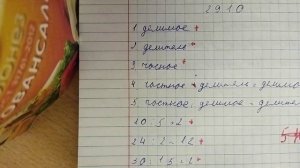 29.10
1. делимое +
2. делитель +
3. частное +
4 частное · делитель = делимо
5. частное. делимое = делител
10 : 5 = 2 +
24 : 2 = 12 +
30 : 15 = 2 +
ОВАНСАЛ